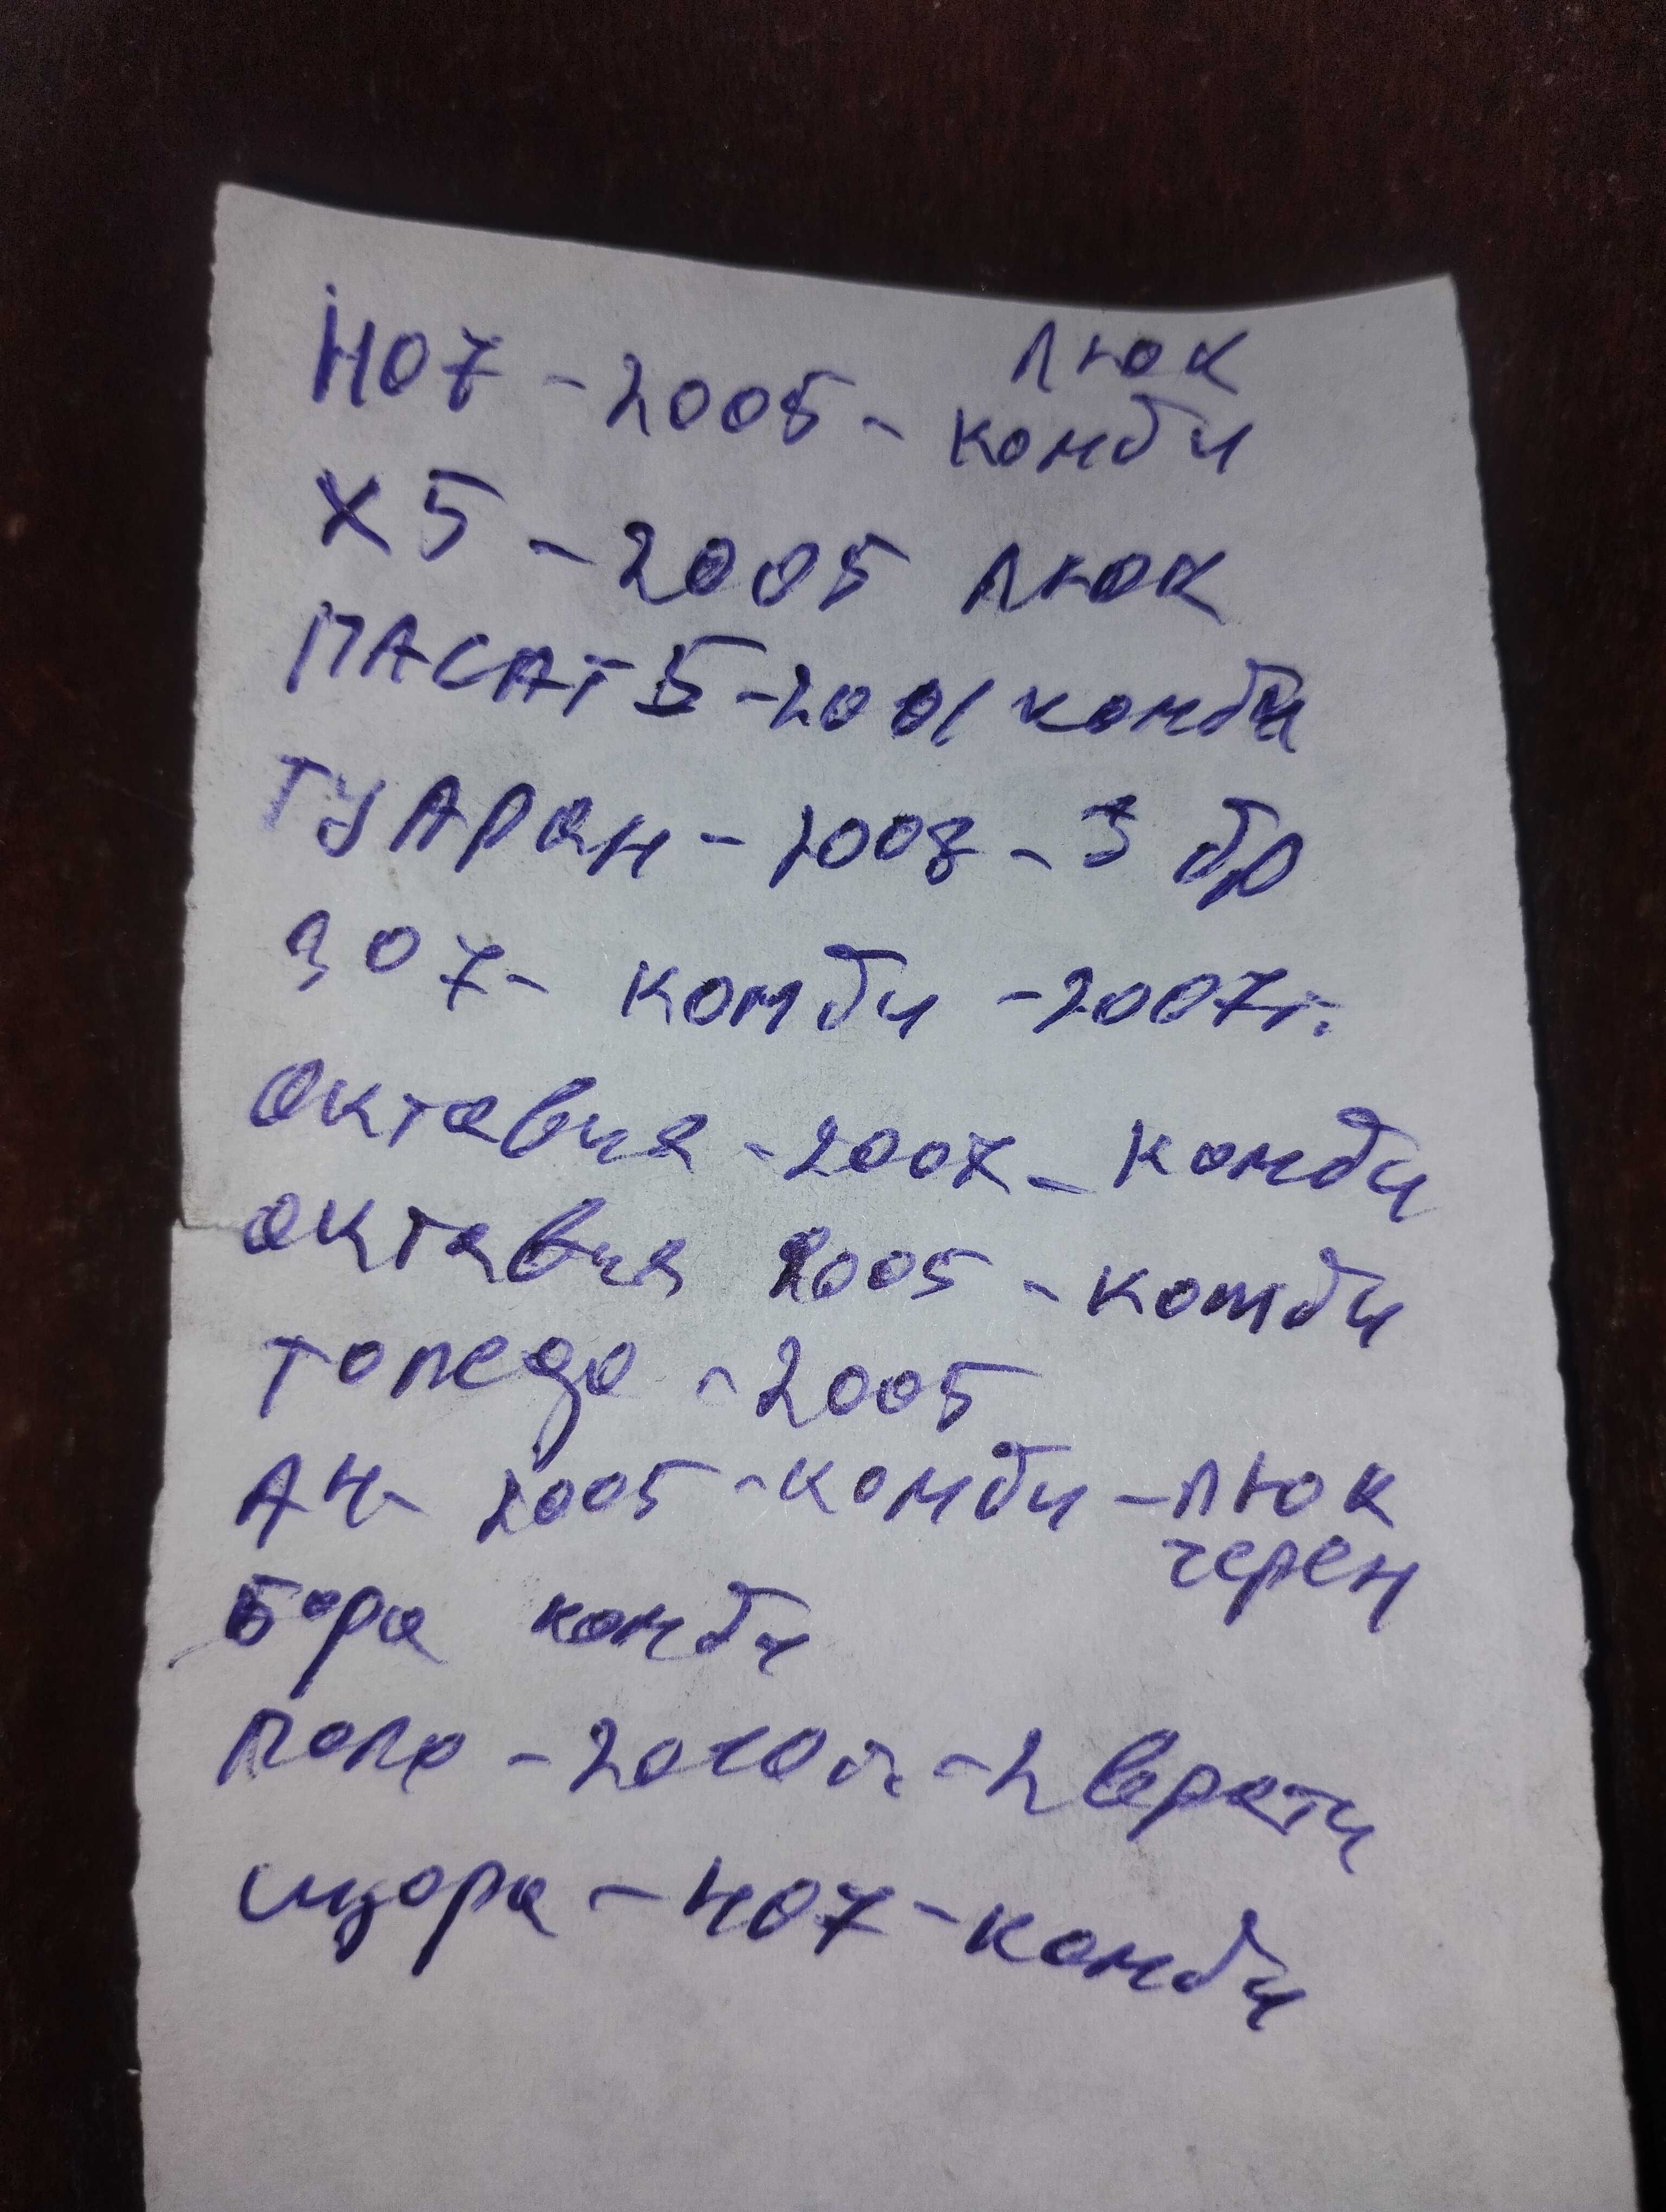 люк
407 - 2005 - комби
X5 - 2005 люк
ПАСАТ 5 - 2001 комби
ТУАРан - 2008 - 3 бр
307 - комби - 2007г.
Октавия - 2007 - комби
октавия 2005 - комби
Толедо - 2005
А4 - 2005 - комби - люк
черен
Бора комби
Поло - 2010г. - 2 врати
щора - 407 - комби